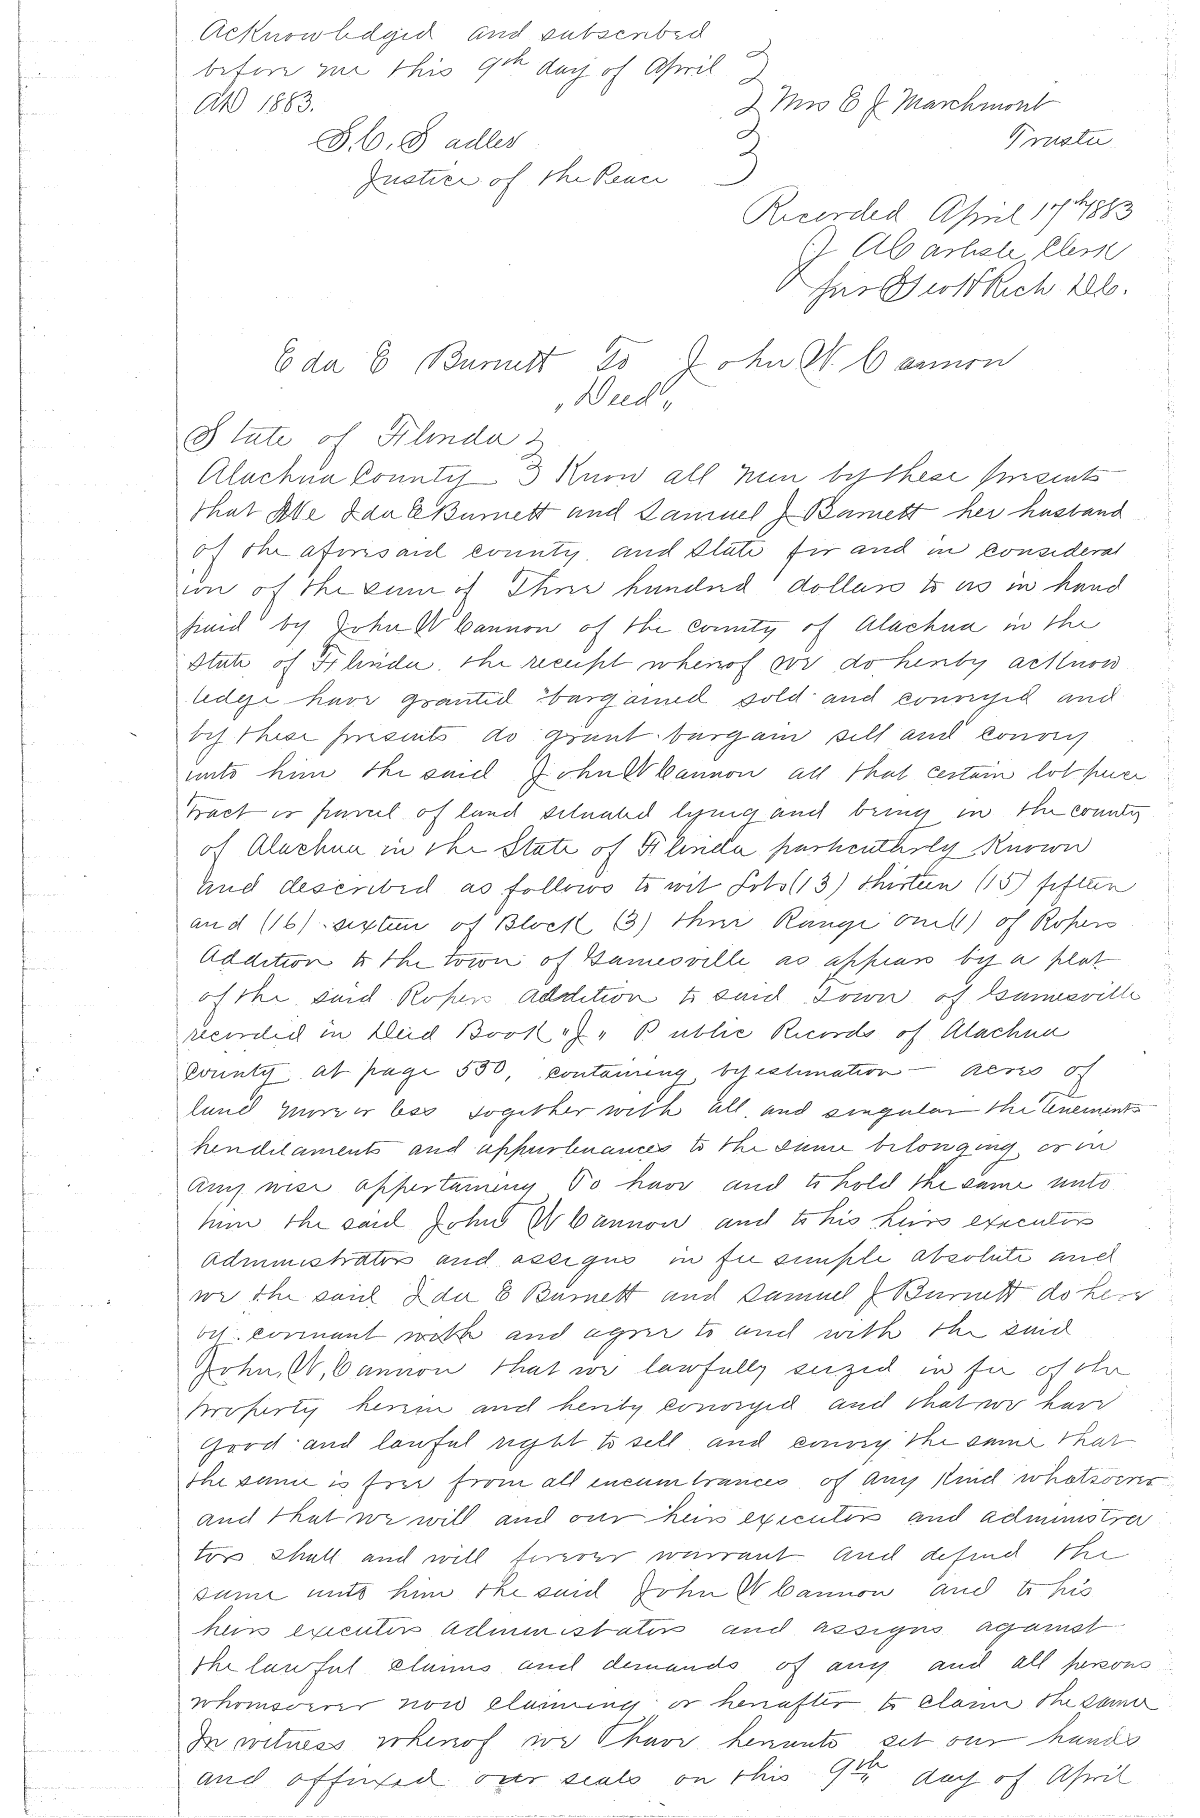 Acknowledged and subscribed
before me this 9th day of April
AD 1883.
Mrs E J Marchmont
Trustee
S. C. Sadler
Justice of the Peace
Recorded April 17th 1883
J A Carlisle Clerk
D C.
Eda E Burnett To John W. Cannon
"Deed"
State of Florida
Alachua County Know all men by these presents
that We Ida E Burnett and Samuel J Burnett her husband
of the aforesaid county and State for and in considerat
ion of the sum of Three hundred dollars to us in hand
paid by John W Cannon of the county of Alachua in the
State of Florida the receipt whereof we do hereby acknow
ledge have granted bargained sold and conveyed and
by these presents do grant bargain sell and convey
unto him the said John W Cannon all that certain lot piece
tract or parcel of land situated lying and being in the county
of Alachua in the State of Florida particutlarly Known
and described as follows to wit Lots (13) thirteen (15) fifteen
and (16) sixteen of Block (3) three Range one (1) of Ropers
Addition to the town of Gainesville as appears by a plat
of the said Ropers addition to said Town of Gainesville
recorded in Deed Book "J" Public Records of Alachua
County at page 530, containing by estimation — acres of
land more or less together with all and singular the tenements
hereditaments and appurtenances to the same belonging or in
any wise appertaining To have and to hold the same unto
him the said John W Cannon and to his heirs executors
administrators and assigns in fee simple absolute and
we the said Ida E Burnett and Samuel J Burnett do here
by covenant with and agree to and with the said
John, W, Cannon that we lawfully seized in fee of the
property herein and hereby conveyed and that we have
good and lawful right to sell and convey the same that
the same is free from all encumbrances of any kind whatsoever
and that we will and our heirs executors and administra
tors shall and will forever warrant and defend the
same unto him the said John W Cannon and to his
heirs executors administrators and assigns against
the lawful claims and demands of any and all persons
whomsoever now claiming or hereafter to claim the same
In witness whereof we have hereunto set our hands
and affixed our seals on this 9th day of April